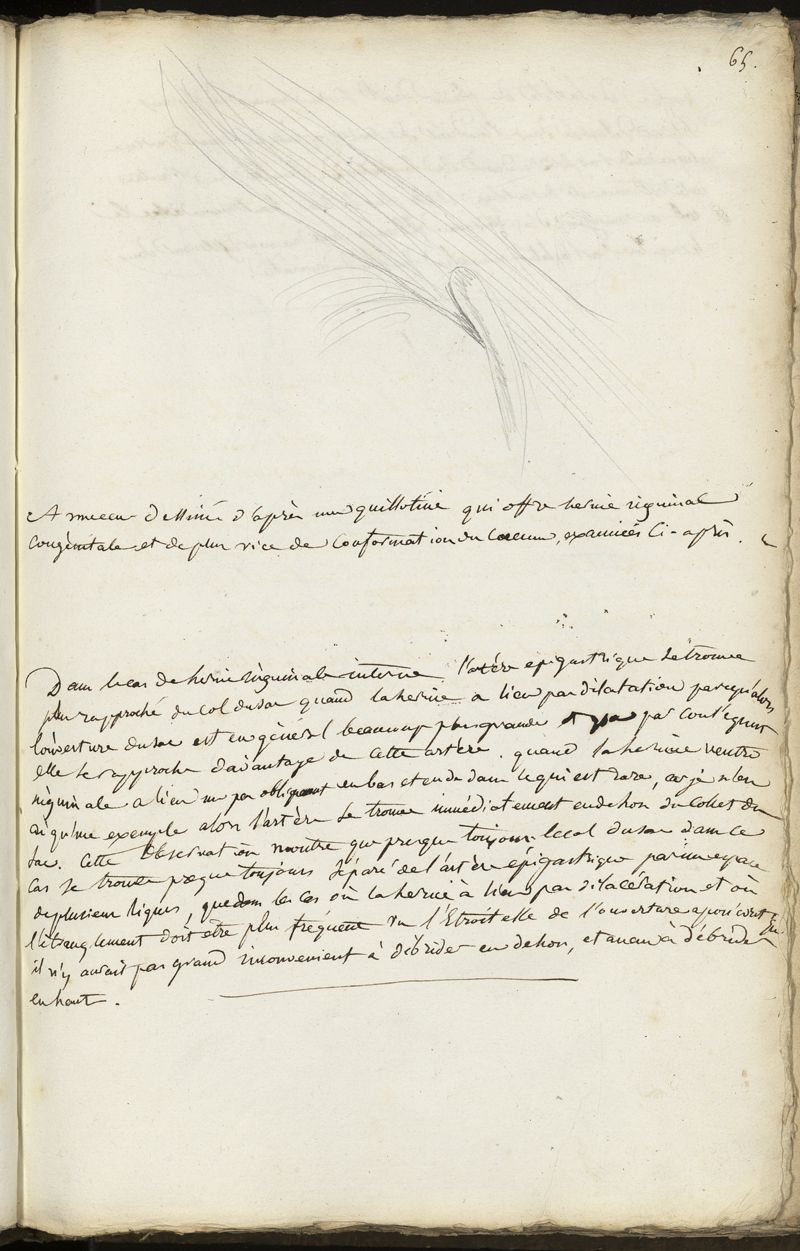 65.
Anneau dessiné d'après une guillotiné qui offre hernie inguinal
Congènitale et de plus vice de Conformation du Coecum, examinés Ci-après.
Dans le cas de hernie inguinale interne l'artère epigastrique se trouve
plus rapproché du Col du sac quand la hernie a lieu par dilatation parcequ'alors
l'ouverture du sac est en général beaucoup plus grande par Conséquent
elle se rapproche d'avantage de Cette artère. quand la hernie ventro
inguinale a lieu un peu obliquement en bas et en dedans ce qui est rare, car je n'en
ai qu'une exemple alors l'artère se trouve immédiatement en dehors du Collet du
Sac. Cette Observation montre que presque toujours le Col du sac dans ce
Cas se trouve presque toujours séparé de l'artère épigastrique par un espace
de plusieurs lignes, que dans les cas où la hernie à lieu par dilacération et où
l'étranglement doit être plus fréquent vu l'Etroitesse de l'ouverture
il n'y aurait pas grand inconvenient à débrider en dehors, et aucun à débrider
en haut.